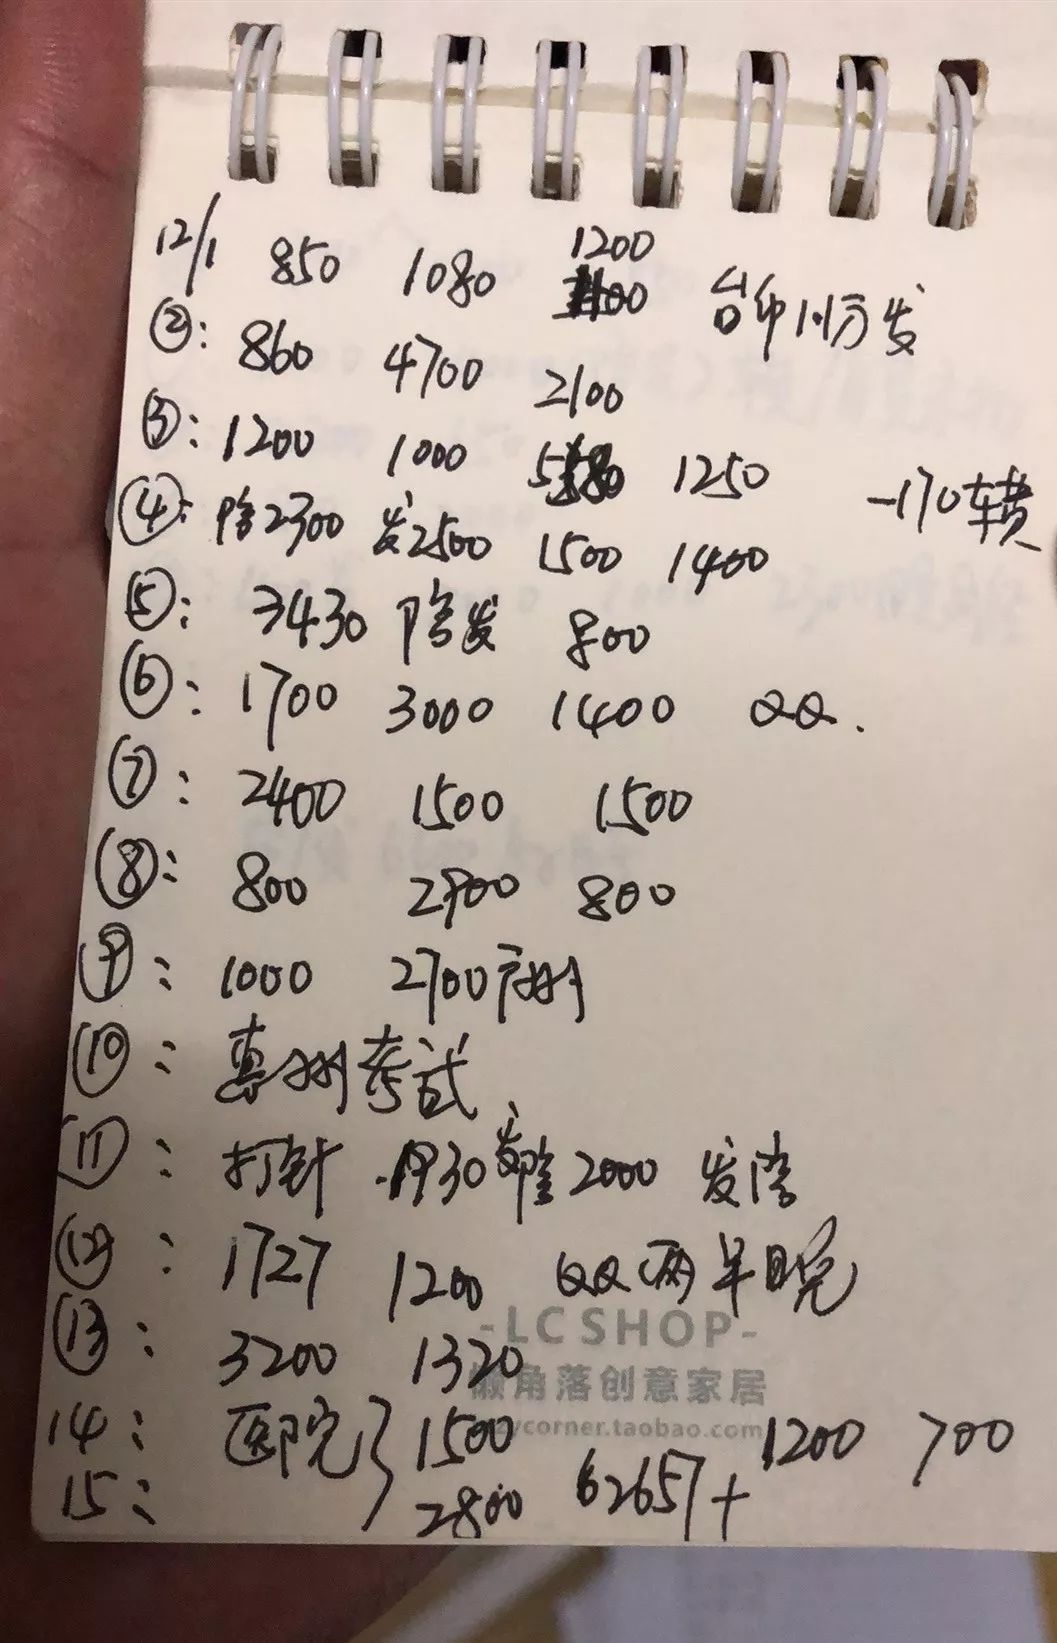 12/1 850 1080 1200
②: 860 4700 2100
③: 1200 1000 1250 -170转
④: 陪2300 发2500 1500 1400
⑤: 3430 陪发 800
⑥: 1700 3000 1400 QQ.
⑦: 2400 1500 1500
⑧: 800 2900 800
⑨: 1000 2700
⑩: 惠州考试
⑪: 打针 2000 发
⑫: 1727 1200 QQ两早晚
⑬: 3200 1320
14: 医院} 1500 1200 700
15: 2800 62657+
-LC SHOP-
懒角落创意家居
zycorner.taobao.com